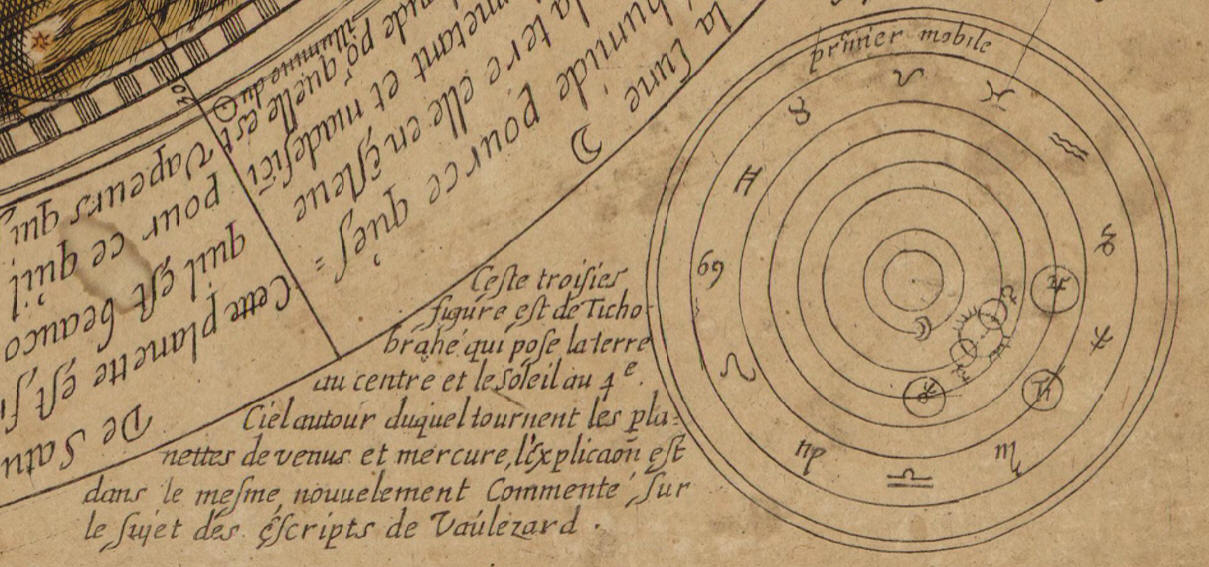 30
Vapeurs qui
pour ce quil
quil est beauco
Cette planette est
De Satu
illuminee du ☉
po.r quelle est
metant et madefi
la tere elle en esleue
humide pource q'ues
la lune ☽
primier mobile
♈ ♓ ♒ ♑ ♐ ♏ ♎ ♍ ♌ 69 ♊ ♉
☽ ♃ ♄ ♂
Ceste troisies
figúre est de Ticho-
brahé qui pose la terre
au centre et le Soleil au 4e.
Ciel autour duquel tournent les pla=
nettes de venus et mercure, l'explicaoñ est
dans le mesme nouuelement Commenté, sur
le sujet des éscripts de Vaulezard .